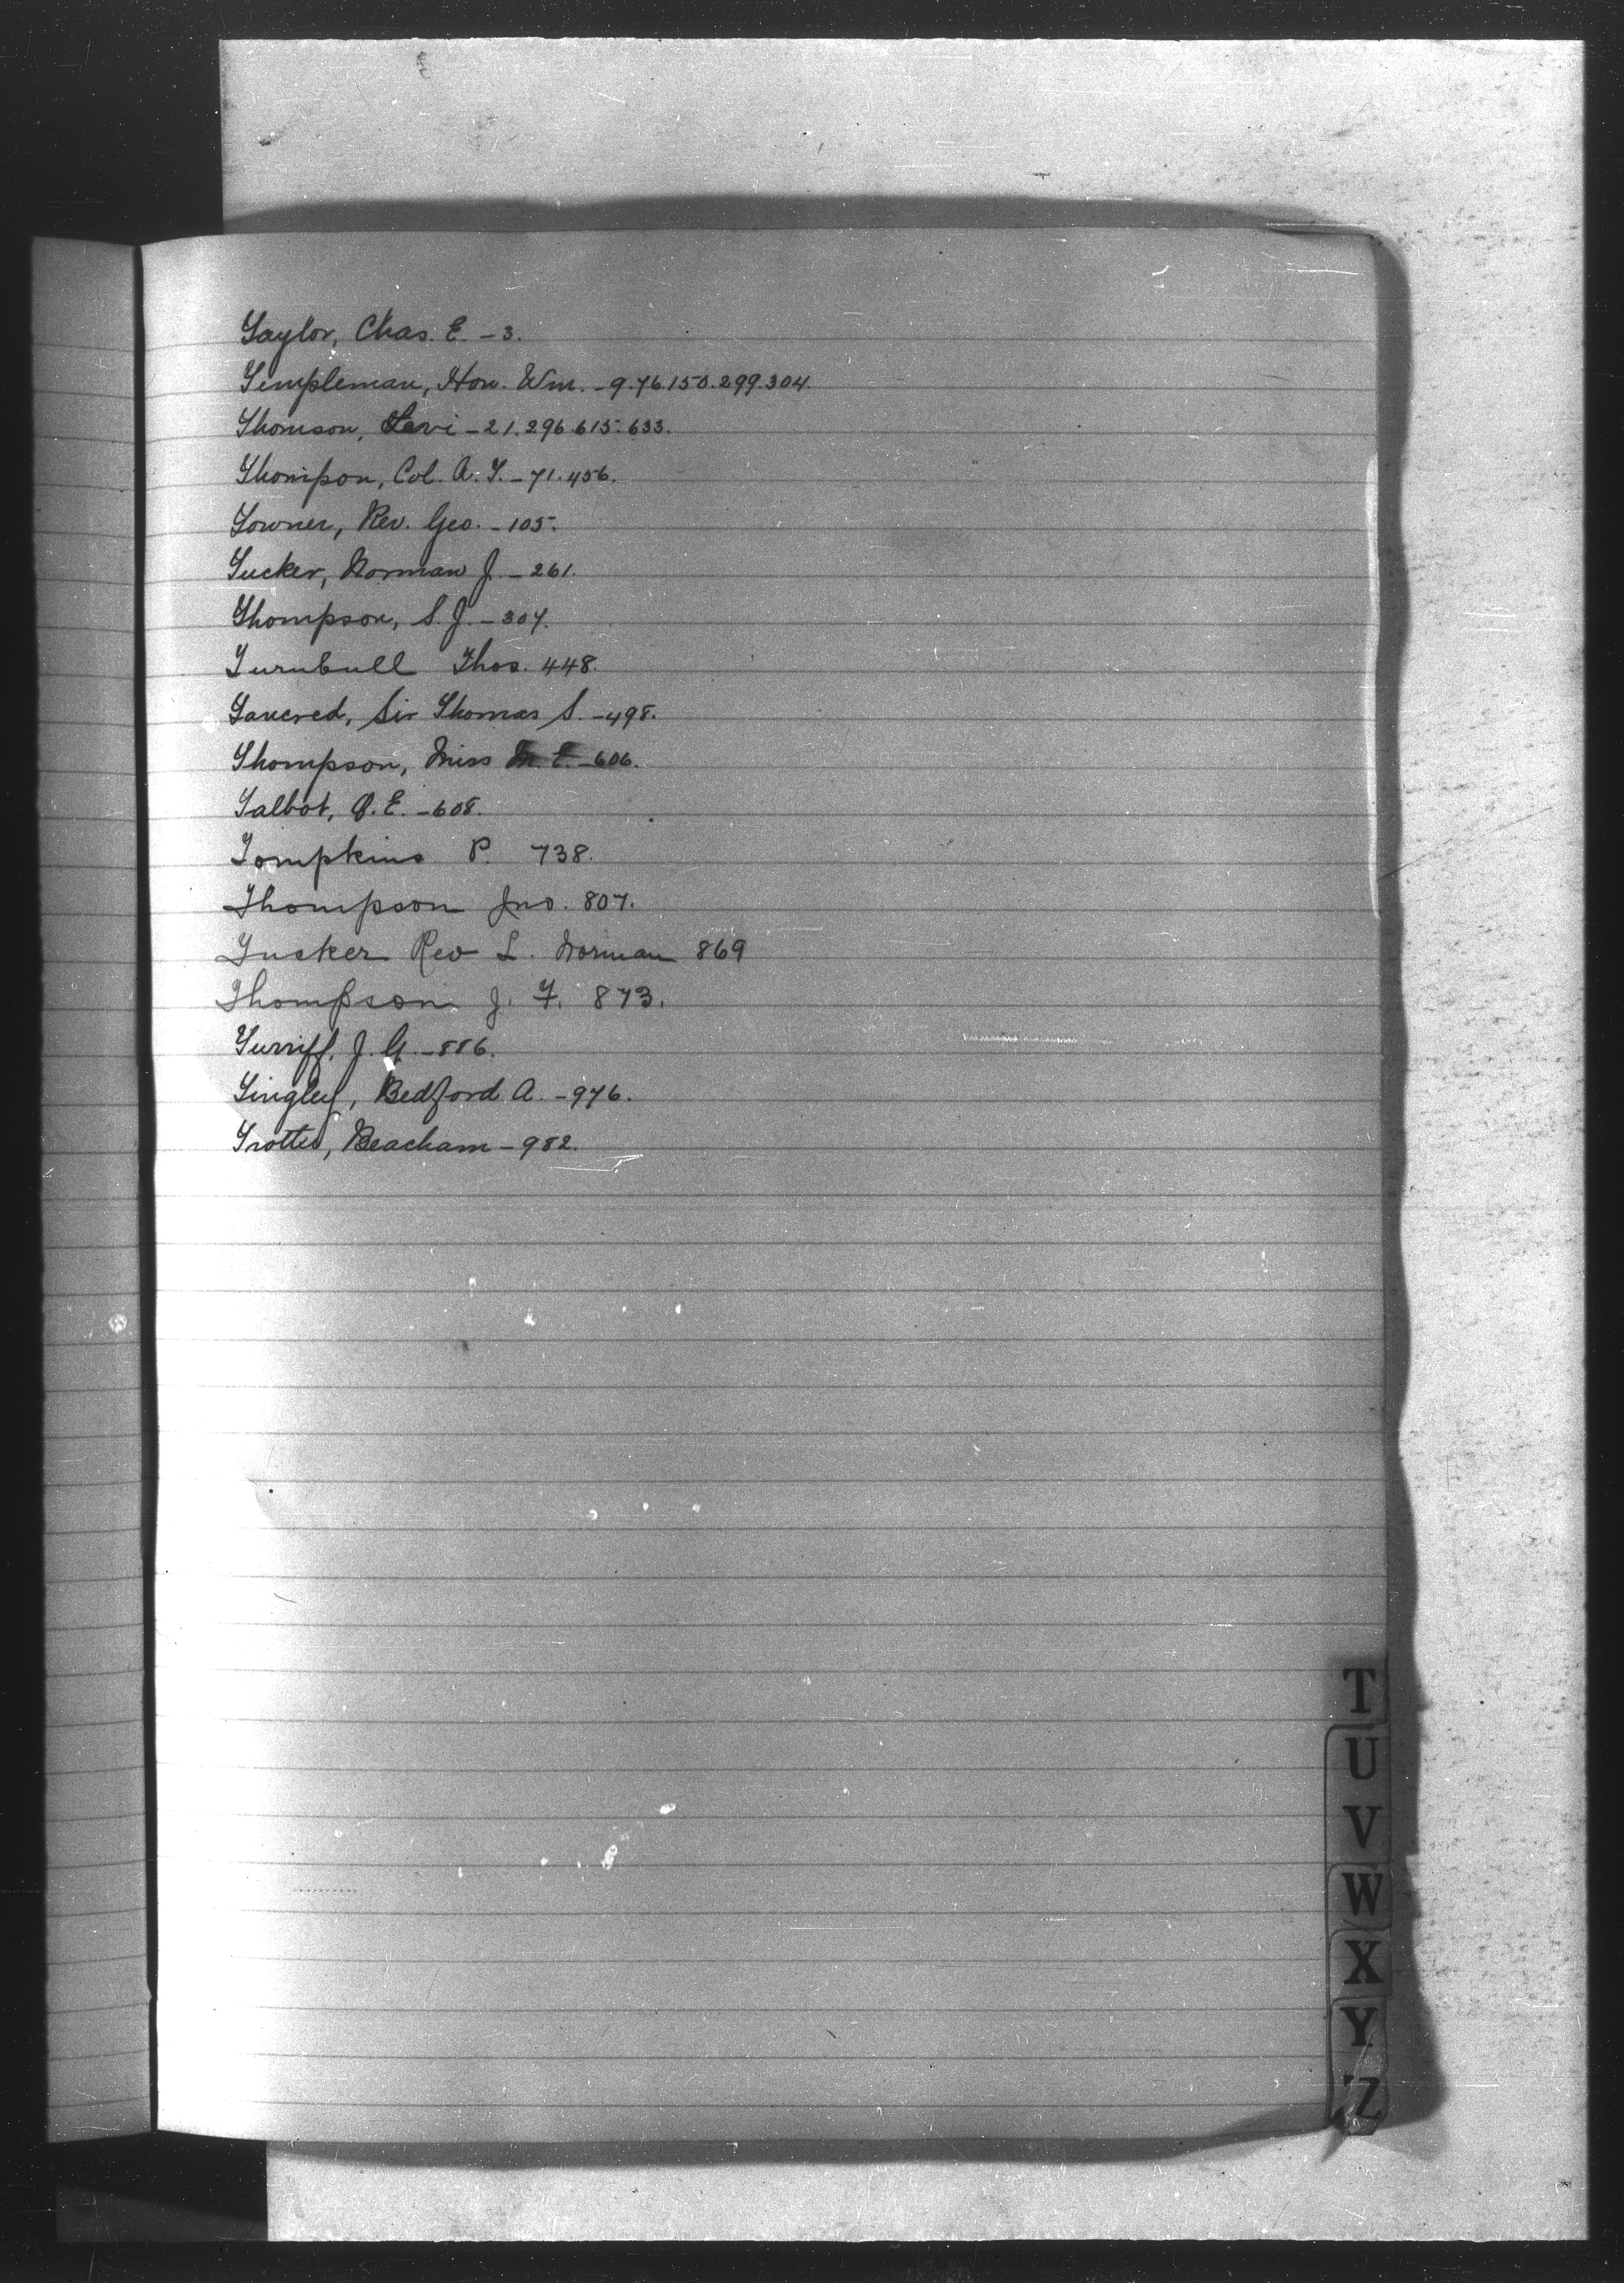 Taylor, Chas. E. - 3.
Templeman, Hon. Wm. - 9.76.150.299.304.
Thomson, Levi - 21.296.615.633.
Thompson, Col. A. T. - 71.456.
Towner, Rev. Geo. - 105.
Tucker, Norman J. - 261.
Thompson, S. J. - 307.
Turnbull Thos. 448.
Tancred, Sir Thomas S. - 498.
Thompson, Miss M. E. - 606.
Talbot, O. E. - 608.
Tompkins P. 738.
Thompson Jno. 807.
Tucker Rev L. Norman 869
Thompson J. F. 873.
Turriff, J. G. - 886.
Tingley, Bedford A. - 976.
Trotter, Beacham - 982.
T
U
V
W
X
Y
Z